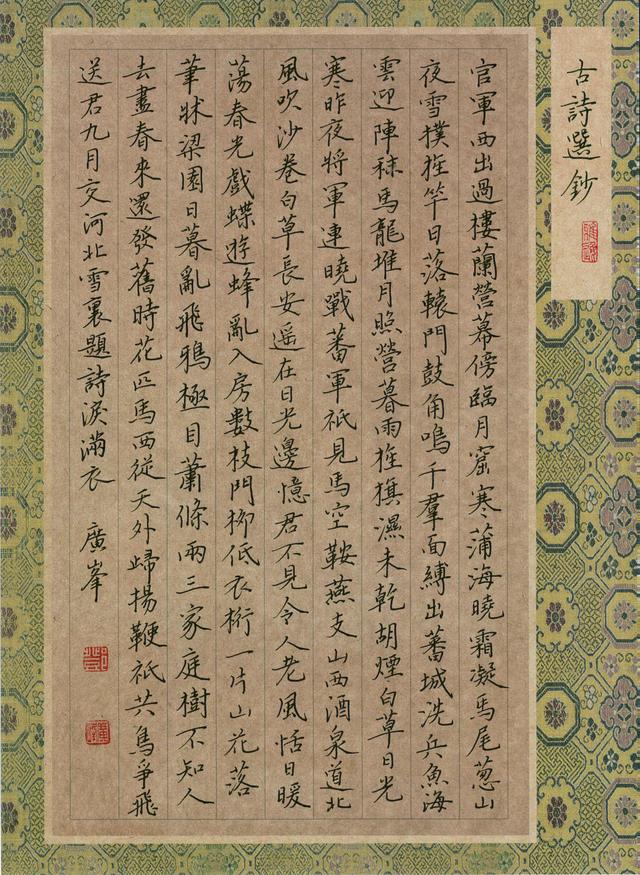 古詩選鈔
官軍西出過樓蘭營幕傍臨月窟寒蒲海曉霜凝馬尾葱山
夜雪撲旌竿日落轅門鼓角鳴千羣面縛出蕃城洗兵魚海
雲迎陣秣馬龍堆月照營暮雨旌旗濕未乾胡煙白草日光
寒昨夜將軍連曉戰蕃軍祇見馬空鞍燕支山西酒泉道北
風吹沙卷白草長安遥在日光邊憶君不見令人老風恬日暖
蕩春光戲蝶遊蜂亂入房數枝門柳低衣桁一片山花落
筆牀梁園日暮亂飛鴉極目蕭條兩三家庭樹不知人
去盡春來還發舊時花匹馬西從天外歸揚鞭祇共鳥爭飛
送君九月交河北雪裏題詩淚滿衣 廣峯